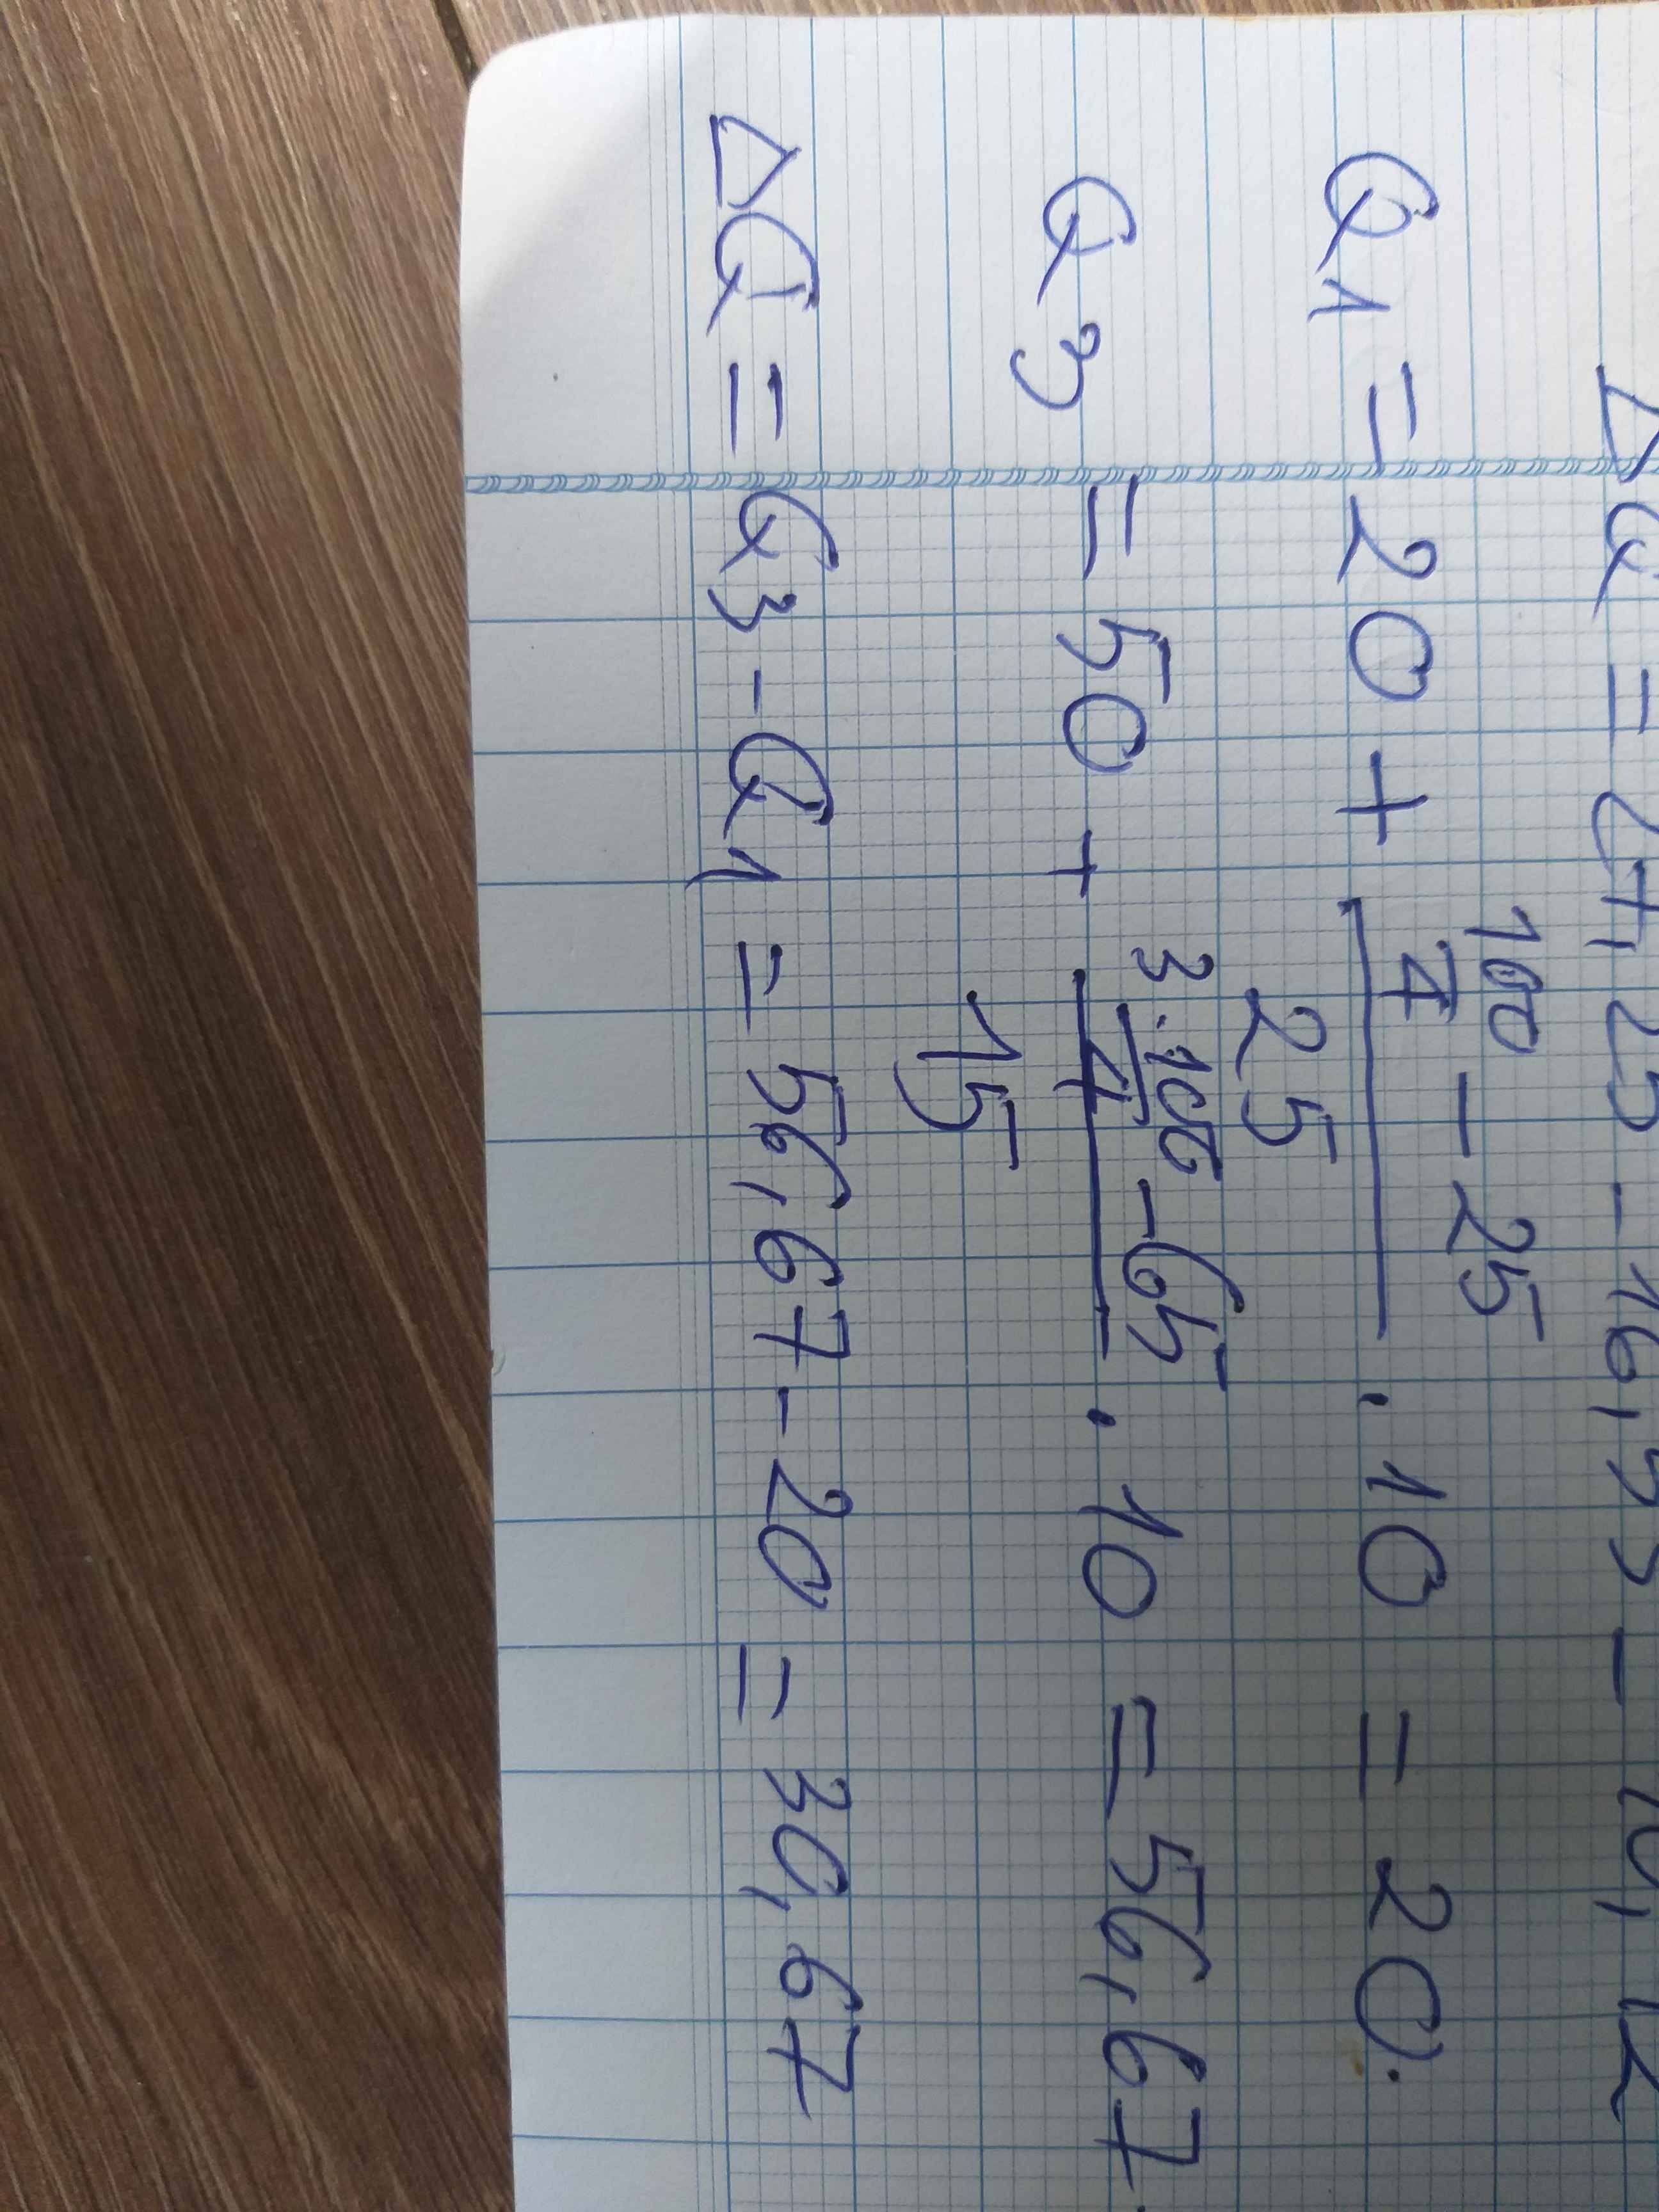 ΔQ =
Q1 = 20 + \frac{\frac{100}{4} - 25}{25} . 10 = 20.
Q3 = 50 + \frac{\frac{3.100}{4} - 65}{15} . 10 = 56,67.
ΔQ = Q3 - Q1 = 56,67 - 20 = 36,67